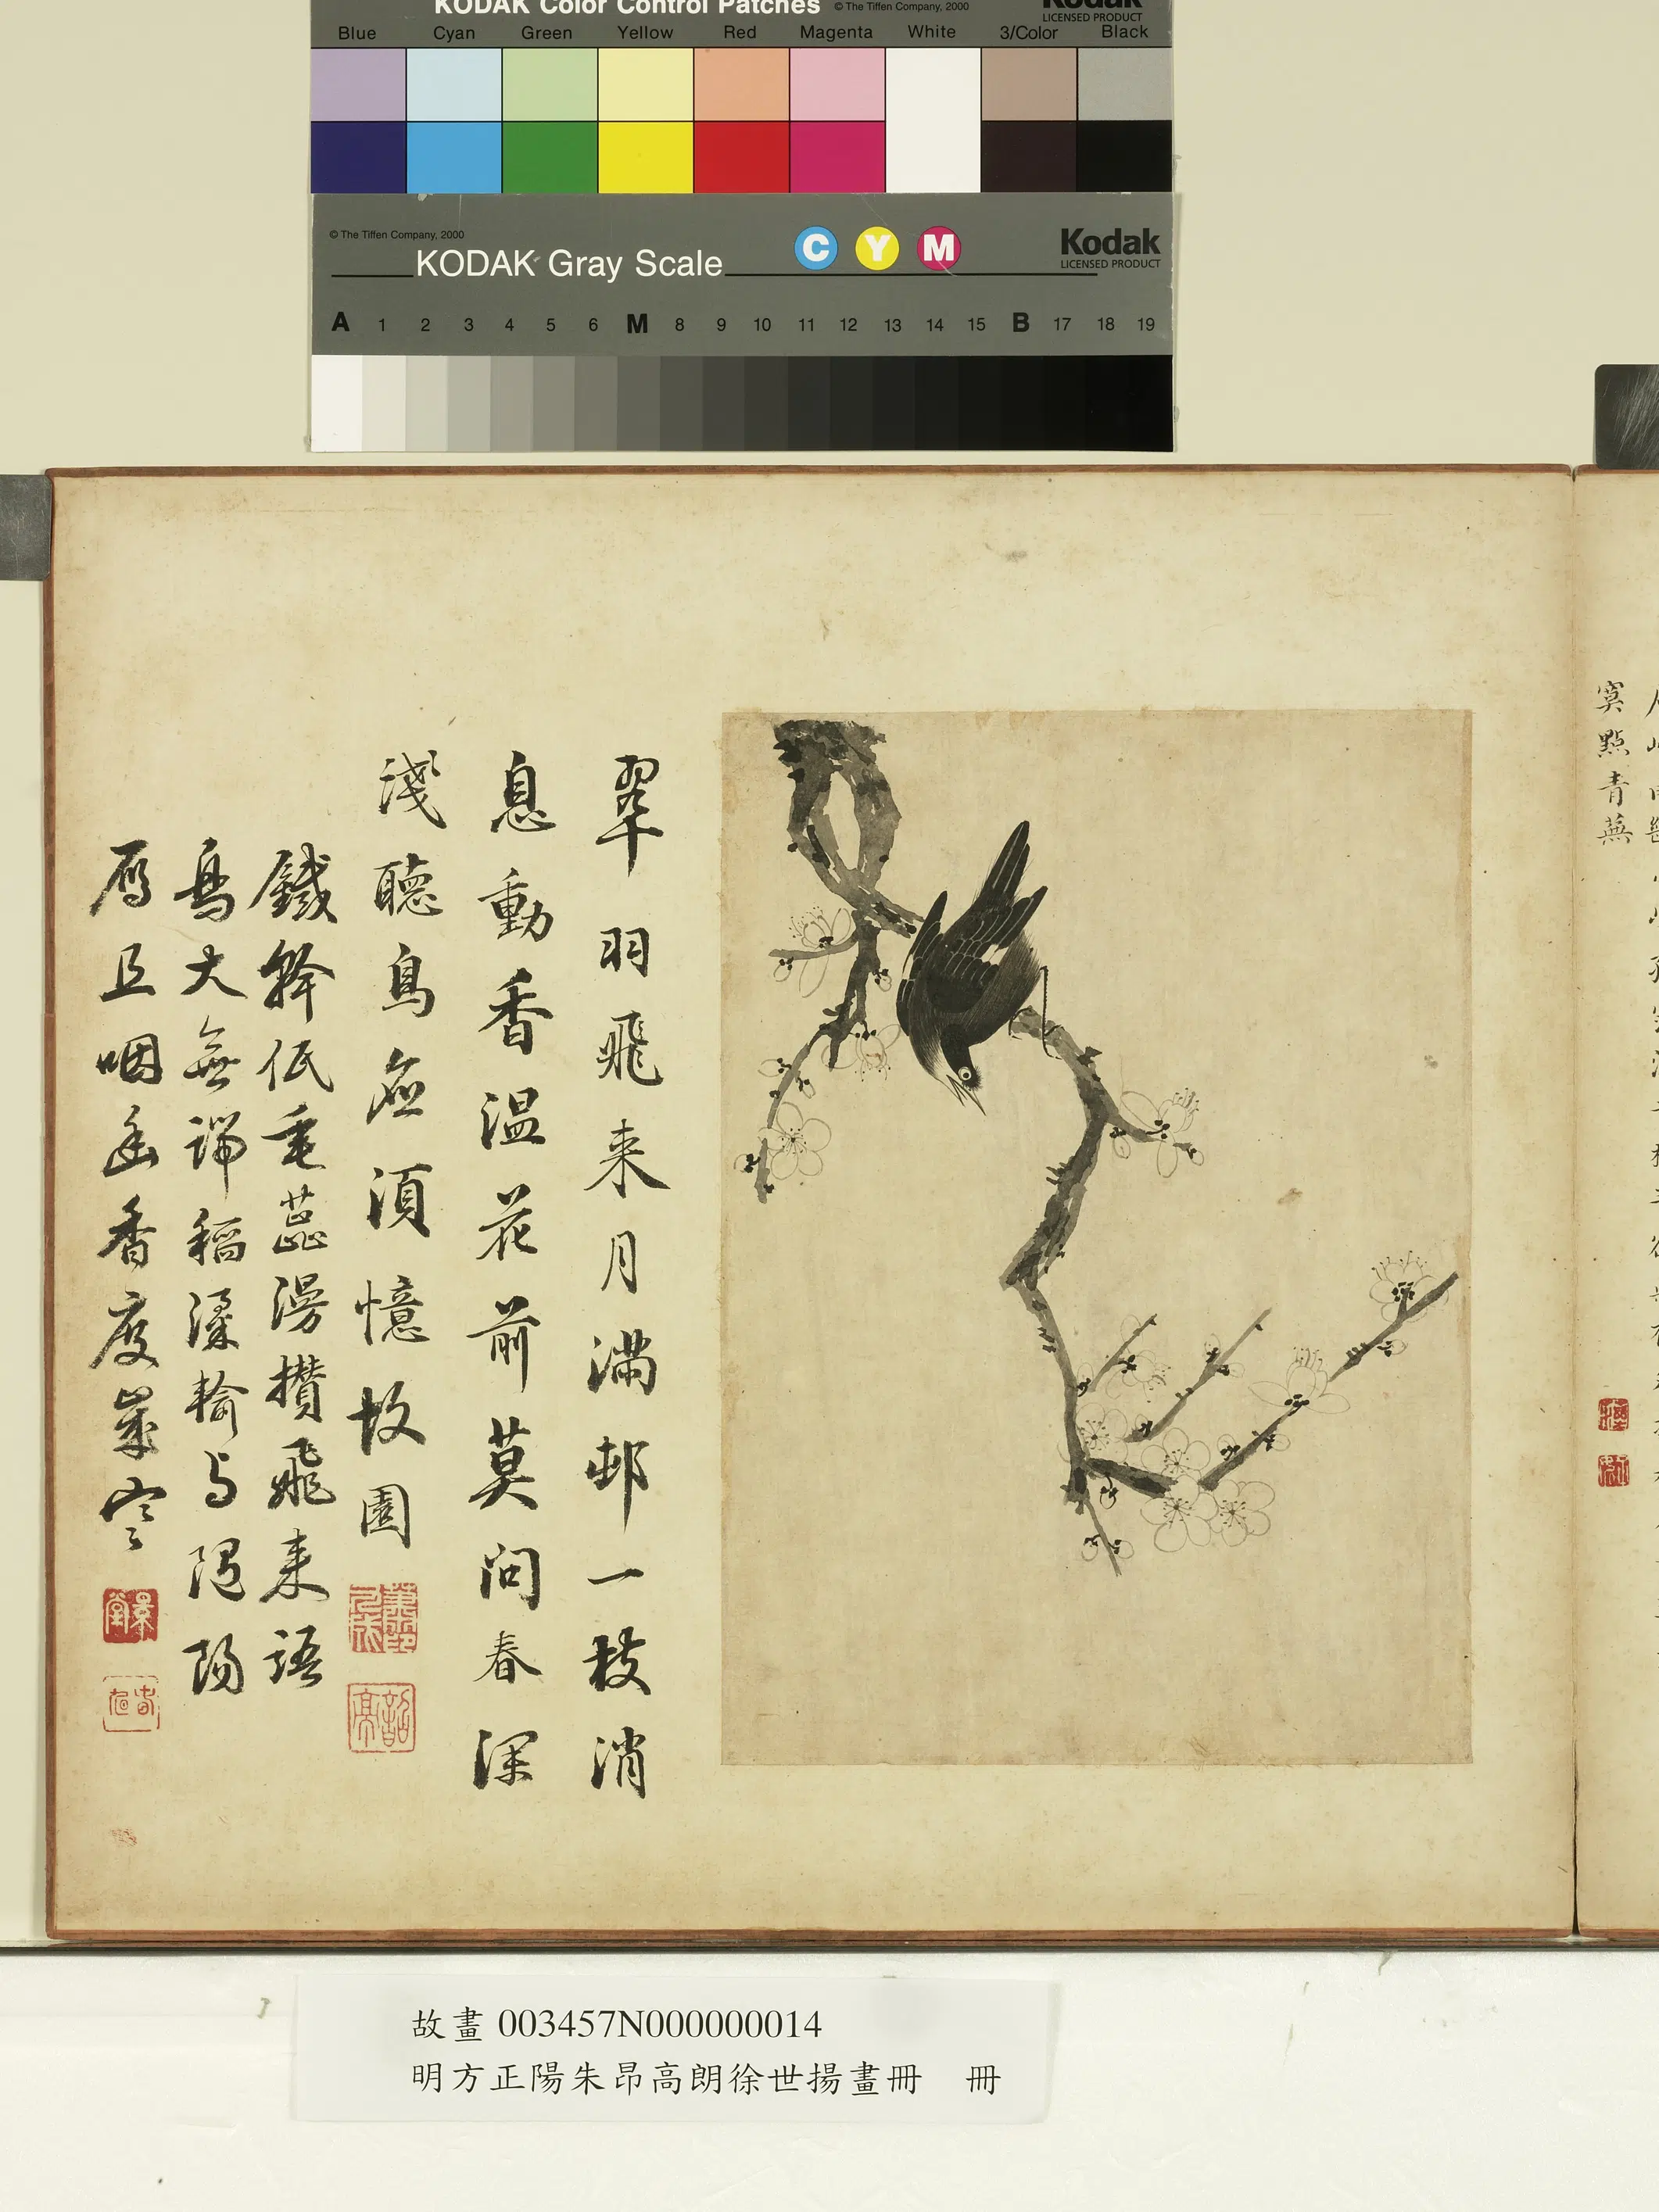 KODAK Color Control Patches © The Tiffen Company, 2000 Kodak
LICENSED PRODUCT
Blue Cyan Green Yellow Red Magenta White 3/Color Black
© The Tiffen Company, 2000
KODAK Gray Scale C Y M Kodak
LICENSED PRODUCT
A 1 2 3 4 5 6 M 8 9 10 11 12 13 14 15 B 17 18 19
寞點青蕪
翠羽飛来月滿邨一枝消
息動香温花前莫问春深
淺聽鳥應須憶故園
鐵幹低垂蕊漫攢飛来語
鳥大無端稻粱輸与随陽
雁且咽幽香度歲寒
故畫 003457N000000014
明方正陽朱昂高朗徐世揚畫冊 冊